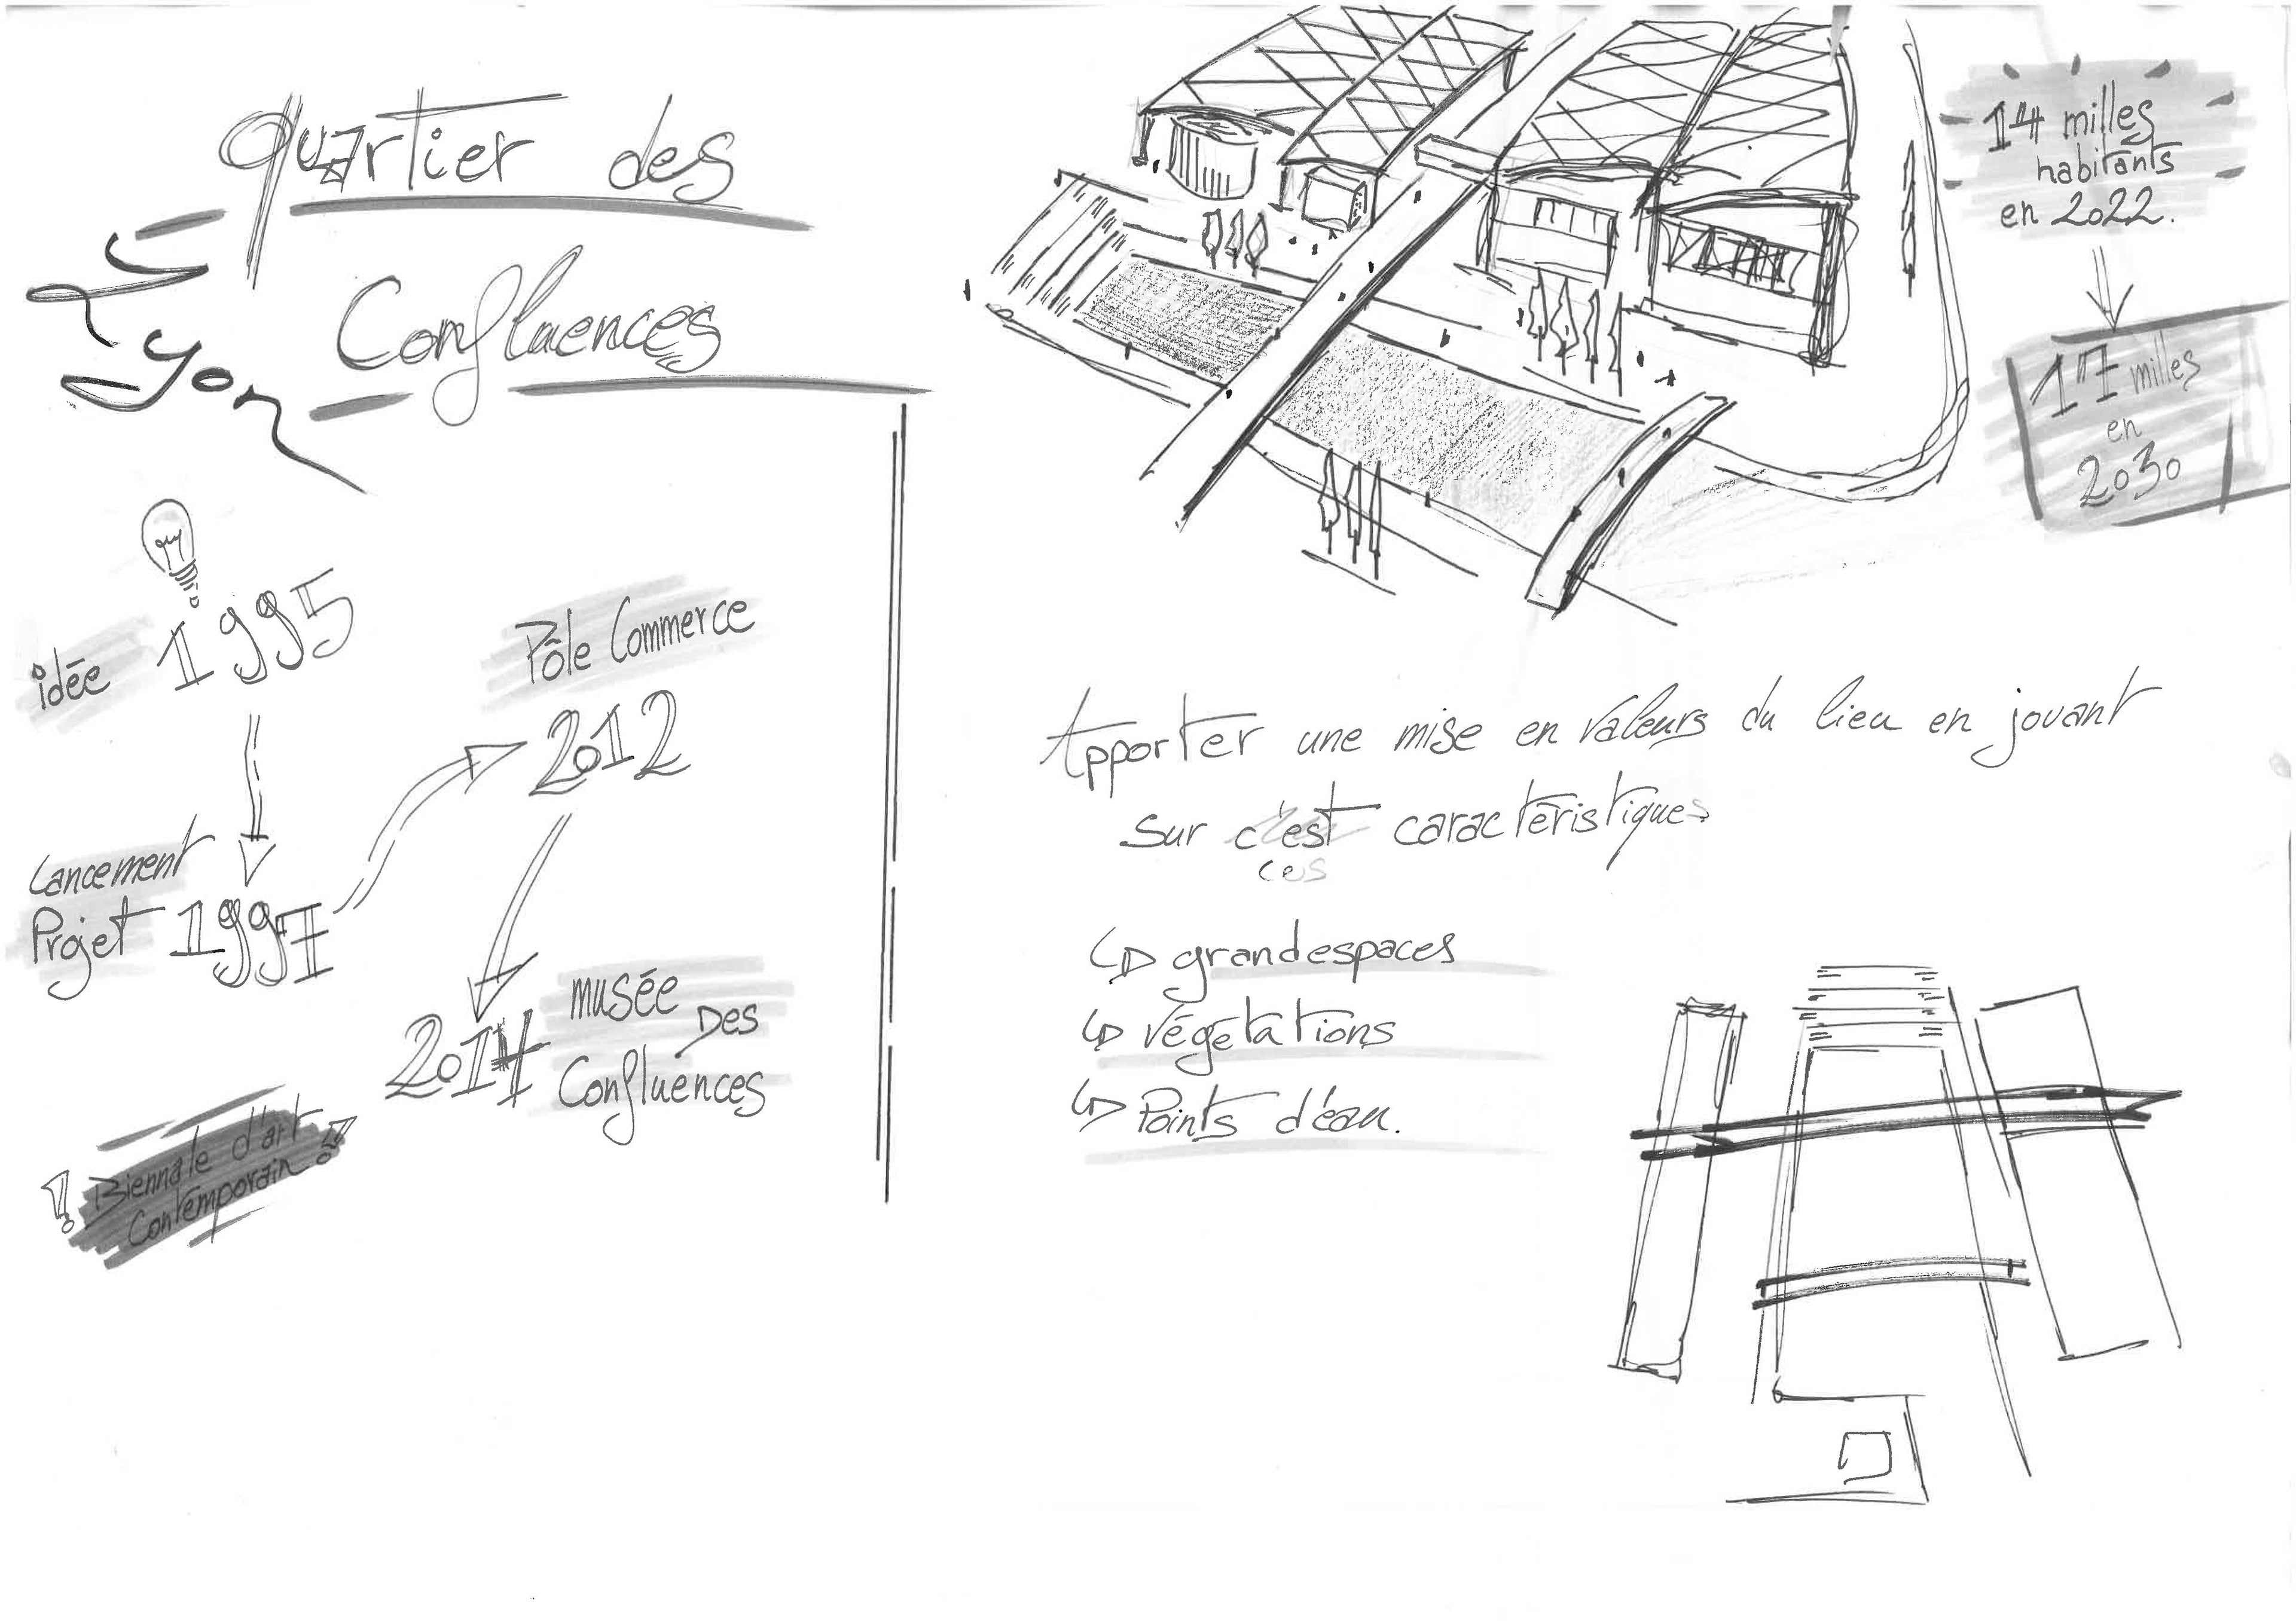 Quartier des
Confluences
Lyon
idée 1995
Lancement
Projet 1997
Pôle Commerce
2012
2014 musée
Des
Confluences
! Biennale d'art
Contemporain !
14 milles
habitants
en 2022.
17 milles
en
2030
Apporter une mise en valeurs du lieu en jouant
sur c'est caractéristiques
ces
grand espaces
végétations
Points d'eau.